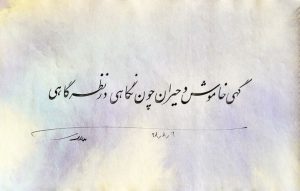 گهی خاموش و حیران چون نگاهی در نظرگاهی